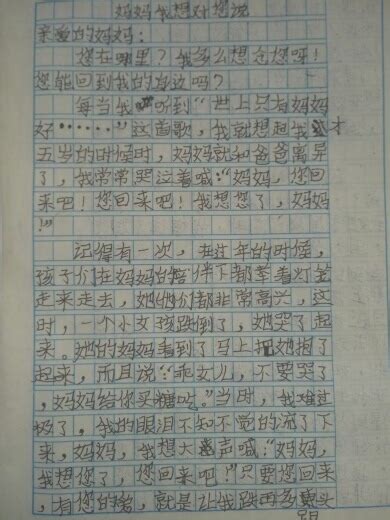 妈妈我想对您说
亲爱的妈妈：
您在哪里？我多么想念您呀！
您能回到我的身边吗？
每当我听到“世上只有妈妈
好……”这首歌，我就想起我才
五岁的时候时，妈妈就和爸爸离异
了，我常常哭泣着喊：“妈妈，您回
来吧！您回来吧！我想您了，妈妈
！”
记得有一次，在过年的时候，
孩子们在妈妈的陪伴下都拿着灯笼
走来走去，她他们都非常高兴，这
时，一个小女孩跌倒了，她哭了起
来。她的妈妈看到了马上把她抱了
起来，而且说：“乖女儿，不要哭了
，妈妈给你买糖吃。”当时，我难过
极了，我的眼泪不知不觉的流了下
来，妈妈，我想大声喊：“妈妈，
我想您了，您回来吧！”只要您回来
，有您的，就是让我跌再多跟头